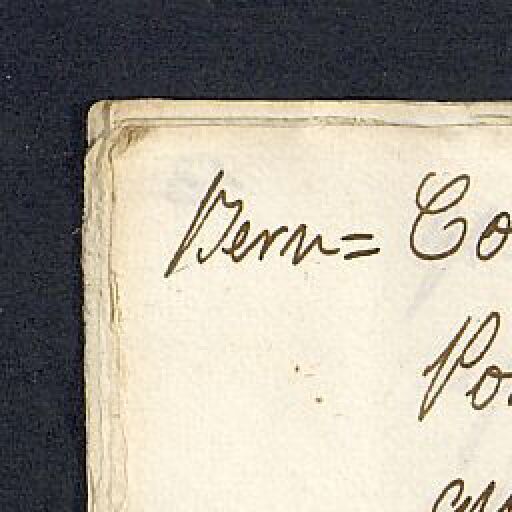 Bern= Co
Po